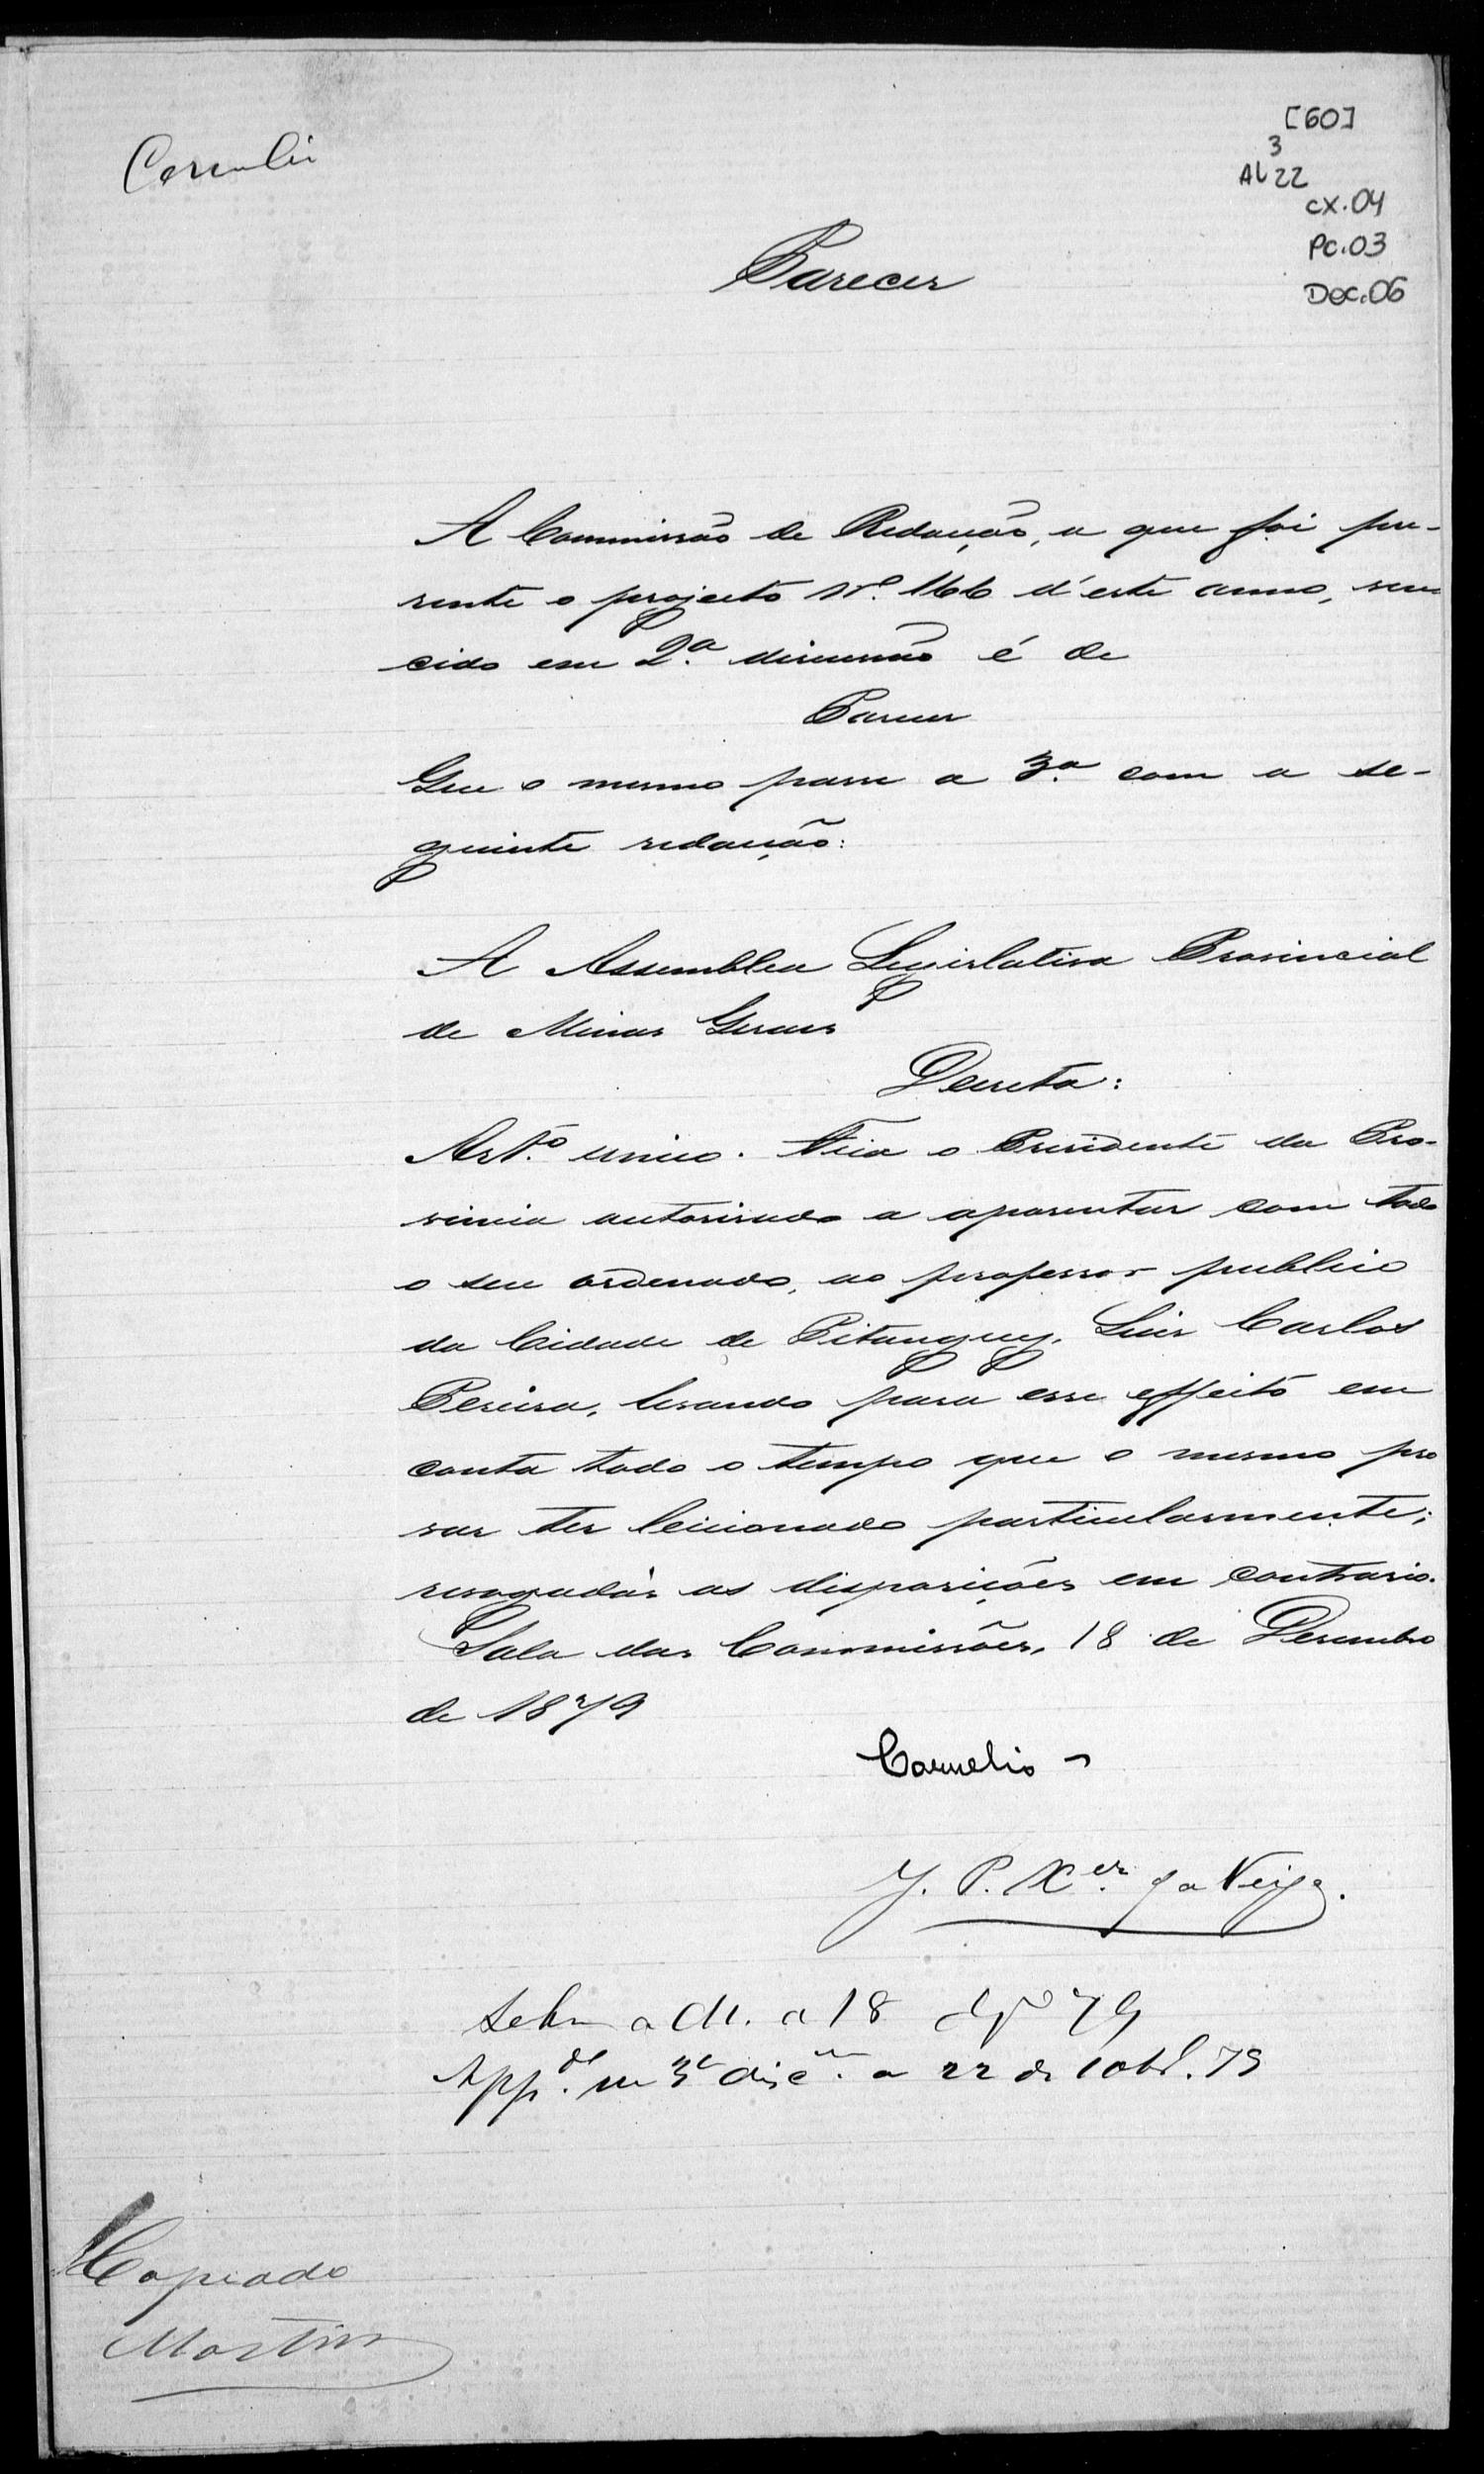 [60]
3
AL 22
cx.04
Pc.03
Doc.06
Parecer
A Commissão de Redacção, a que foi pre-
sente o projecto Nº. 166 d'este anno, ven
cido em 2.ª discussão é de
Parecer
Que o mesmo passe a 3.ª com a se-
guinte redacção:
A Assemblea Legislativa Provincial
de Minas Geraes
Decreta:
Art.º unico. Fica o Presidente da Pro-
vincia autorisado a aposentar com todo
o seu ordenado, ao professor publico
da Cidade de Pitanguy, Luis Carlos
Pereira, levando para esse effeito em
conta todo o tempo que o mesmo pro
var ter leccionado particularmente;
revogadas as disposições em contrario.
Sala das Commissões, 18 de Desembro
de 1879
Cornelio
J. P. X.er da Veiga.
a 18 79
App.da em 3ª disc.am a 22 de 10br.º 79
Copiado
Martins